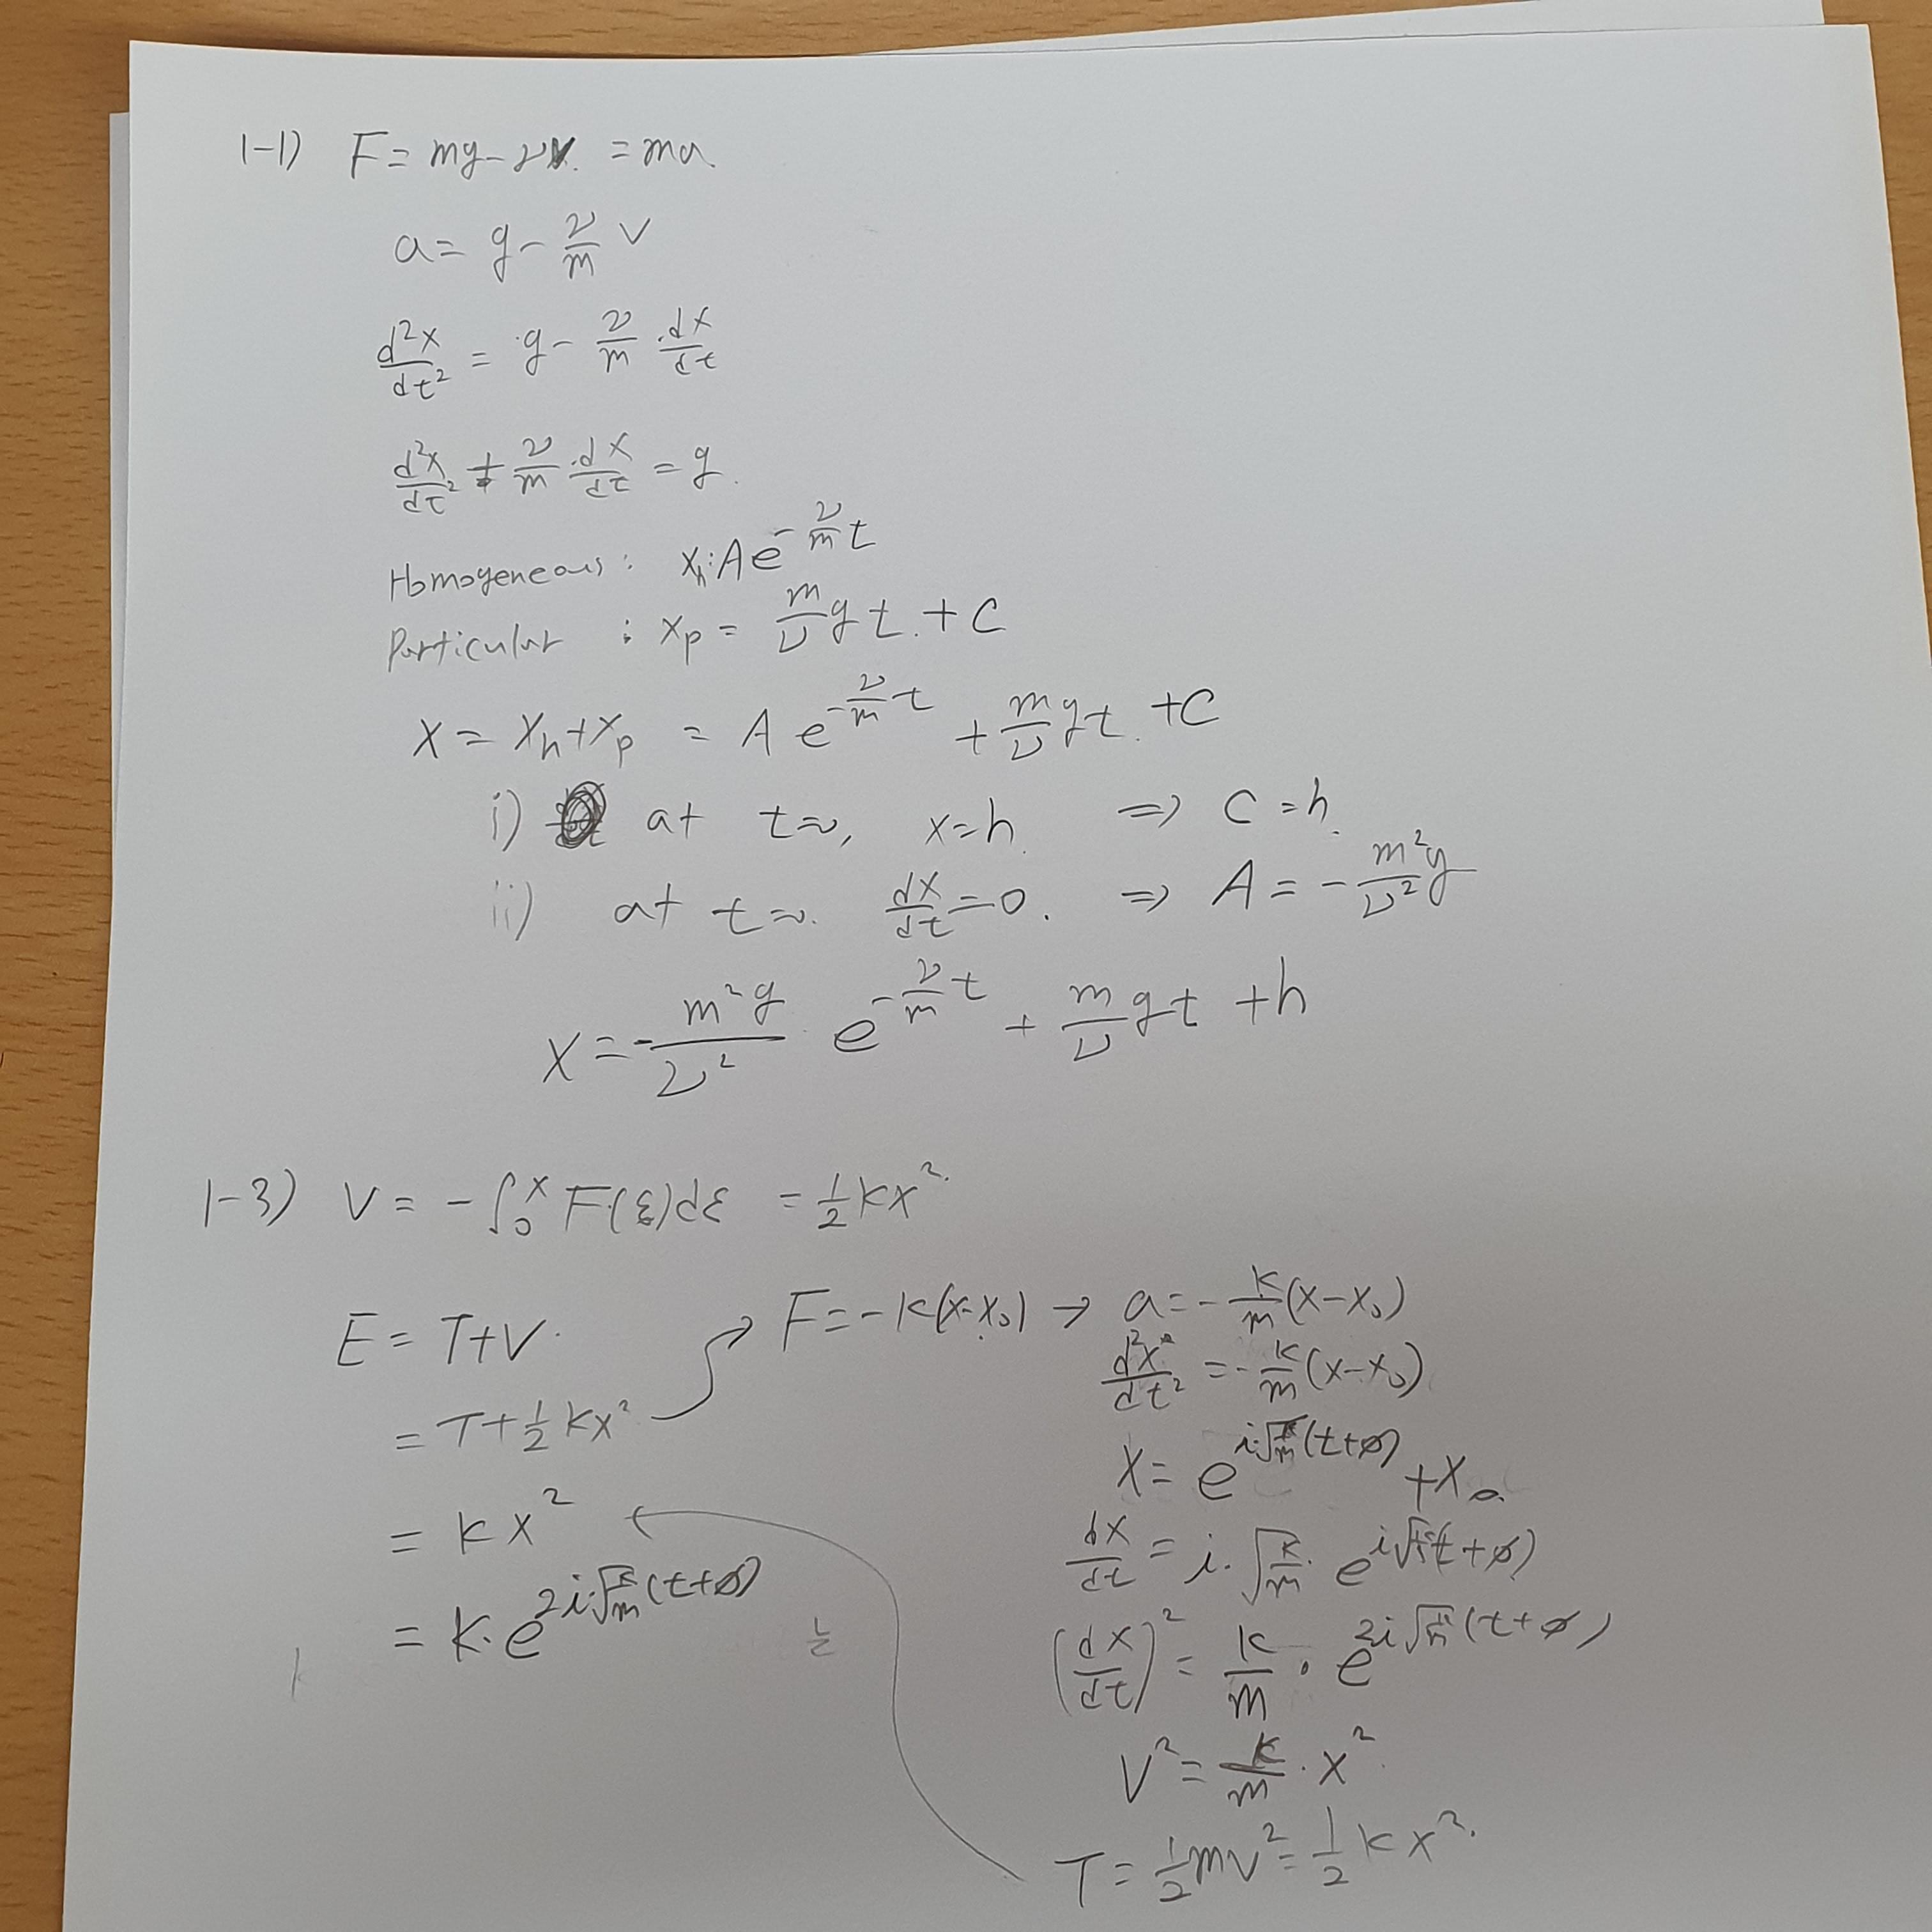 1-1) F = mg - νv = ma.
a = g - ν/m v
d²x/dt² = g - ν/m · dx/dt
d²x/dt² + ν/m · dx/dt = g.
Homogeneous : x_h : A e^(-ν/m t)
Particular : x_p = m/ν g t. + C
x = x_h + x_p = A e^(-ν/m t) + m/ν g t. + C
i) at t=0, x=h. => C = h.
ii) at t=0. dx/dt = 0. => A = - m²g/ν²
x = - m²g/ν² e^(-ν/m t) + m/ν g t + h
1-3) V = - ∫₀ˣ F(ξ)dξ = 1/2 kx².
E = T+V.
= T + 1/2 kx²
= kx²
= k · e^(2i√(k/m) (t+ø))
F = -k(x-x₀) → a = - k/m (x-x₀)
d²x/dt² = - k/m (x-x₀)
x = e^(i√(k/m) (t+ø)) + x₀
dx/dt = i · √(k/m) · e^(i√(k/m) (t+ø))
(dx/dt)² = k/m · e^(2i√(k/m) (t+ø))
V² = k/m · x².
T = 1/2 mv² = 1/2 kx².